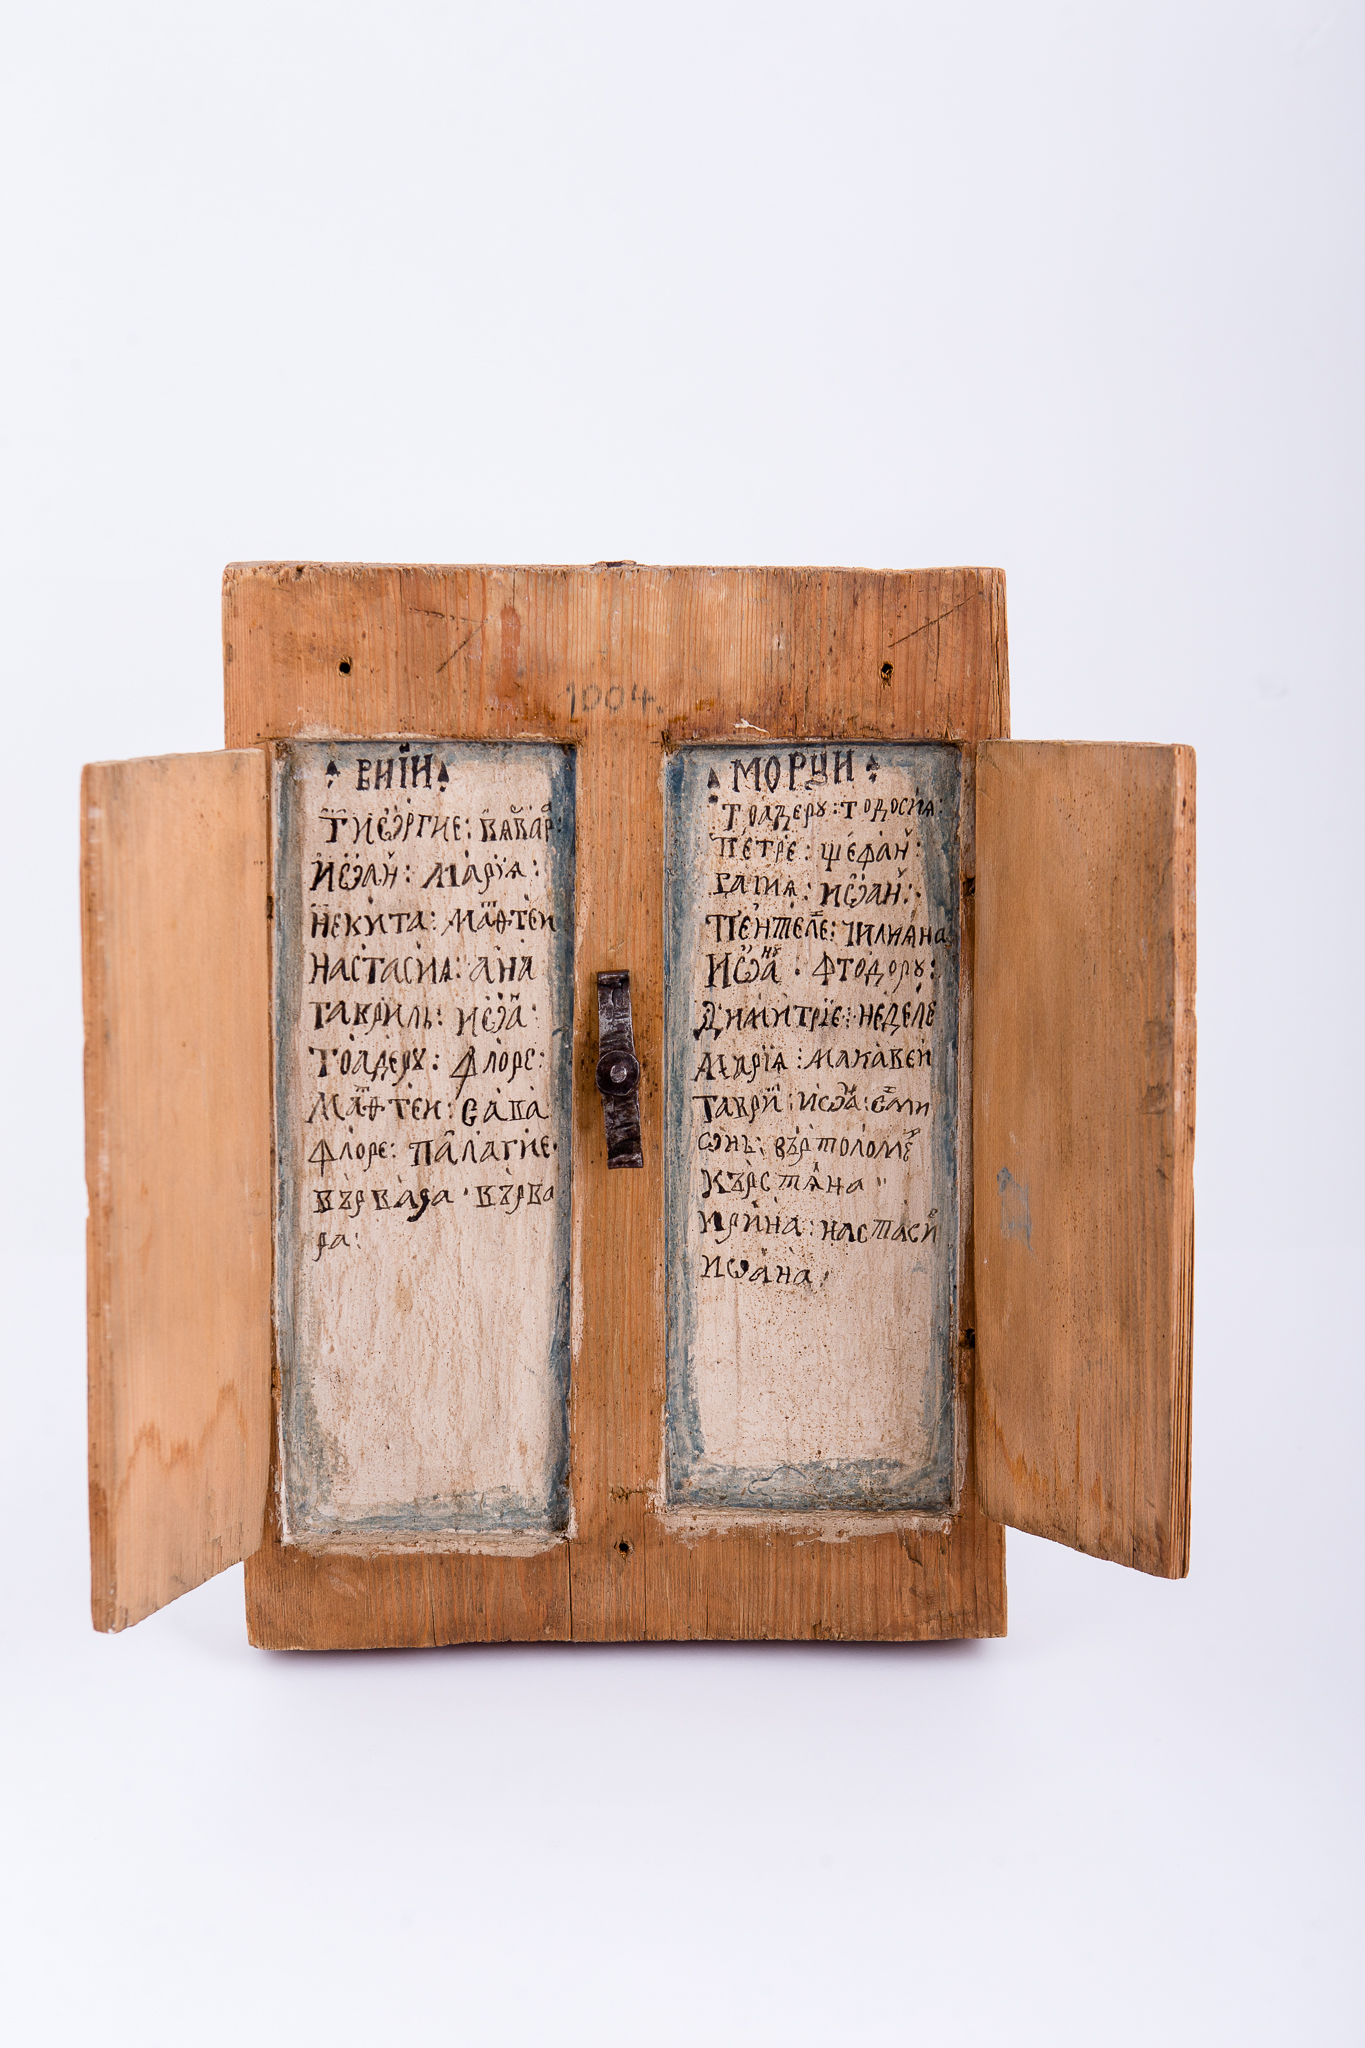 1004.
ВИЇИ
ГИЄѠРГИЕ: ВАВАР:
ИѠАН: МАРЇѦ:
НЕКИТА: МАѲТЕИ
НАСТАСИѦ: АНА
ГАВРИЛЬ: ИѠА:
ТОАДЕРꙋ: ФЛОРЕ:
МАѲТЕИ: САВА
ФЛОРЕ: ПАЛАГИЕ·
ВЪРВАРА· ВЪРВА
РА:
МОРЦИ
ТОАДЕРꙋ: ТОДОСИѦ:
ПЕТРЕ: ЩЕФАН:
ИѠАН:
ПЕНТЕЛЕ: ИЛИѦНА
ИѠАНꙋ · ФТОДОРꙋ:
ДИМИТРЇЕ: НЕДЕЛЕ
МАРЇѦ: МАКАВЕИ
ГАВРИ: ИѠА: СИМИ
ѠНЬ: ВЪРТОЛОМЕ
КЪРСТѦНА
ИРИНА: НАСТАСИЕ
ИѠАНА